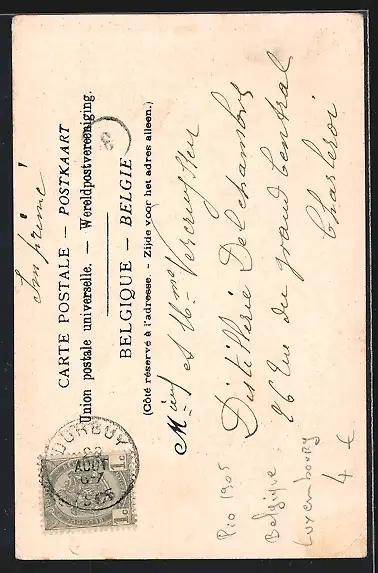 Imprimé
CARTE POSTALE — POSTKAART
Union postale universelle. — Wereldpostvereeniging.
BELGIQUE — BELGIE
(Côté réservé à l'adresse. – Zijde voor het adres alleen.)
8
Mr et Mme Vercruyssen
Distillerie Delchambre
26 Rue du grand Central
Charleroi
DURBUY
AOUT
1c 1c
Pio 1905
Belgique
Luxembourg
4 €